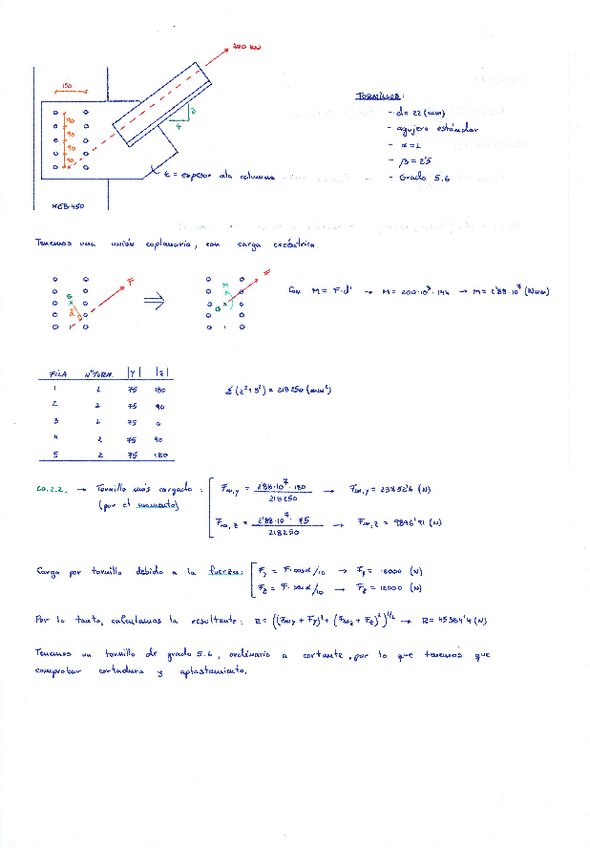 200 KN
150
90
90
90
90
3
4
t = espesor ala columna
HEB-450
TORNILLOS:
- d = 22 (mm)
- agujero estándar
- α = 2
- β = 2'5
- Grado 5.6
Tenemos una unión coplanaria, con carga excéntrica
F
G
d'
M
F
G
Con M = F·d' → M = 200·10³·144 → M = 2'88·10⁷ (Nmm)
FILA Nº TORN. |Y| |z|
1 2 75 180
2 2 75 90
3 2 75 0
4 2 75 90
5 2 75 180
Σ (z²+y²) = 218250 (mm²)
→ Tornillo más cargado: Fm,y = 2'88·10⁷·180 / 218250 → Fm,y = 23752'6 (N)
(por el momento)
Fm,z = 2'88·10⁷·75 / 218250 → Fm,z = 9896'91 (N)
Carga por tornillo debido a la fuerza: Fy = F·cosα/10 → Fy = 16000 (N)
Fz = F·senα/10 → Fz = 12000 (N)
Por lo tanto, calculamos la resultante: R = ((Fmy + Fy)² + (Fmz + Fz)²)^1/2 → R = 45364'4 (N)
Tenemos un tornillo de grado 5.6, ordinario a cortante, por lo que tenemos que
comprobar cortadura y aplastamiento.